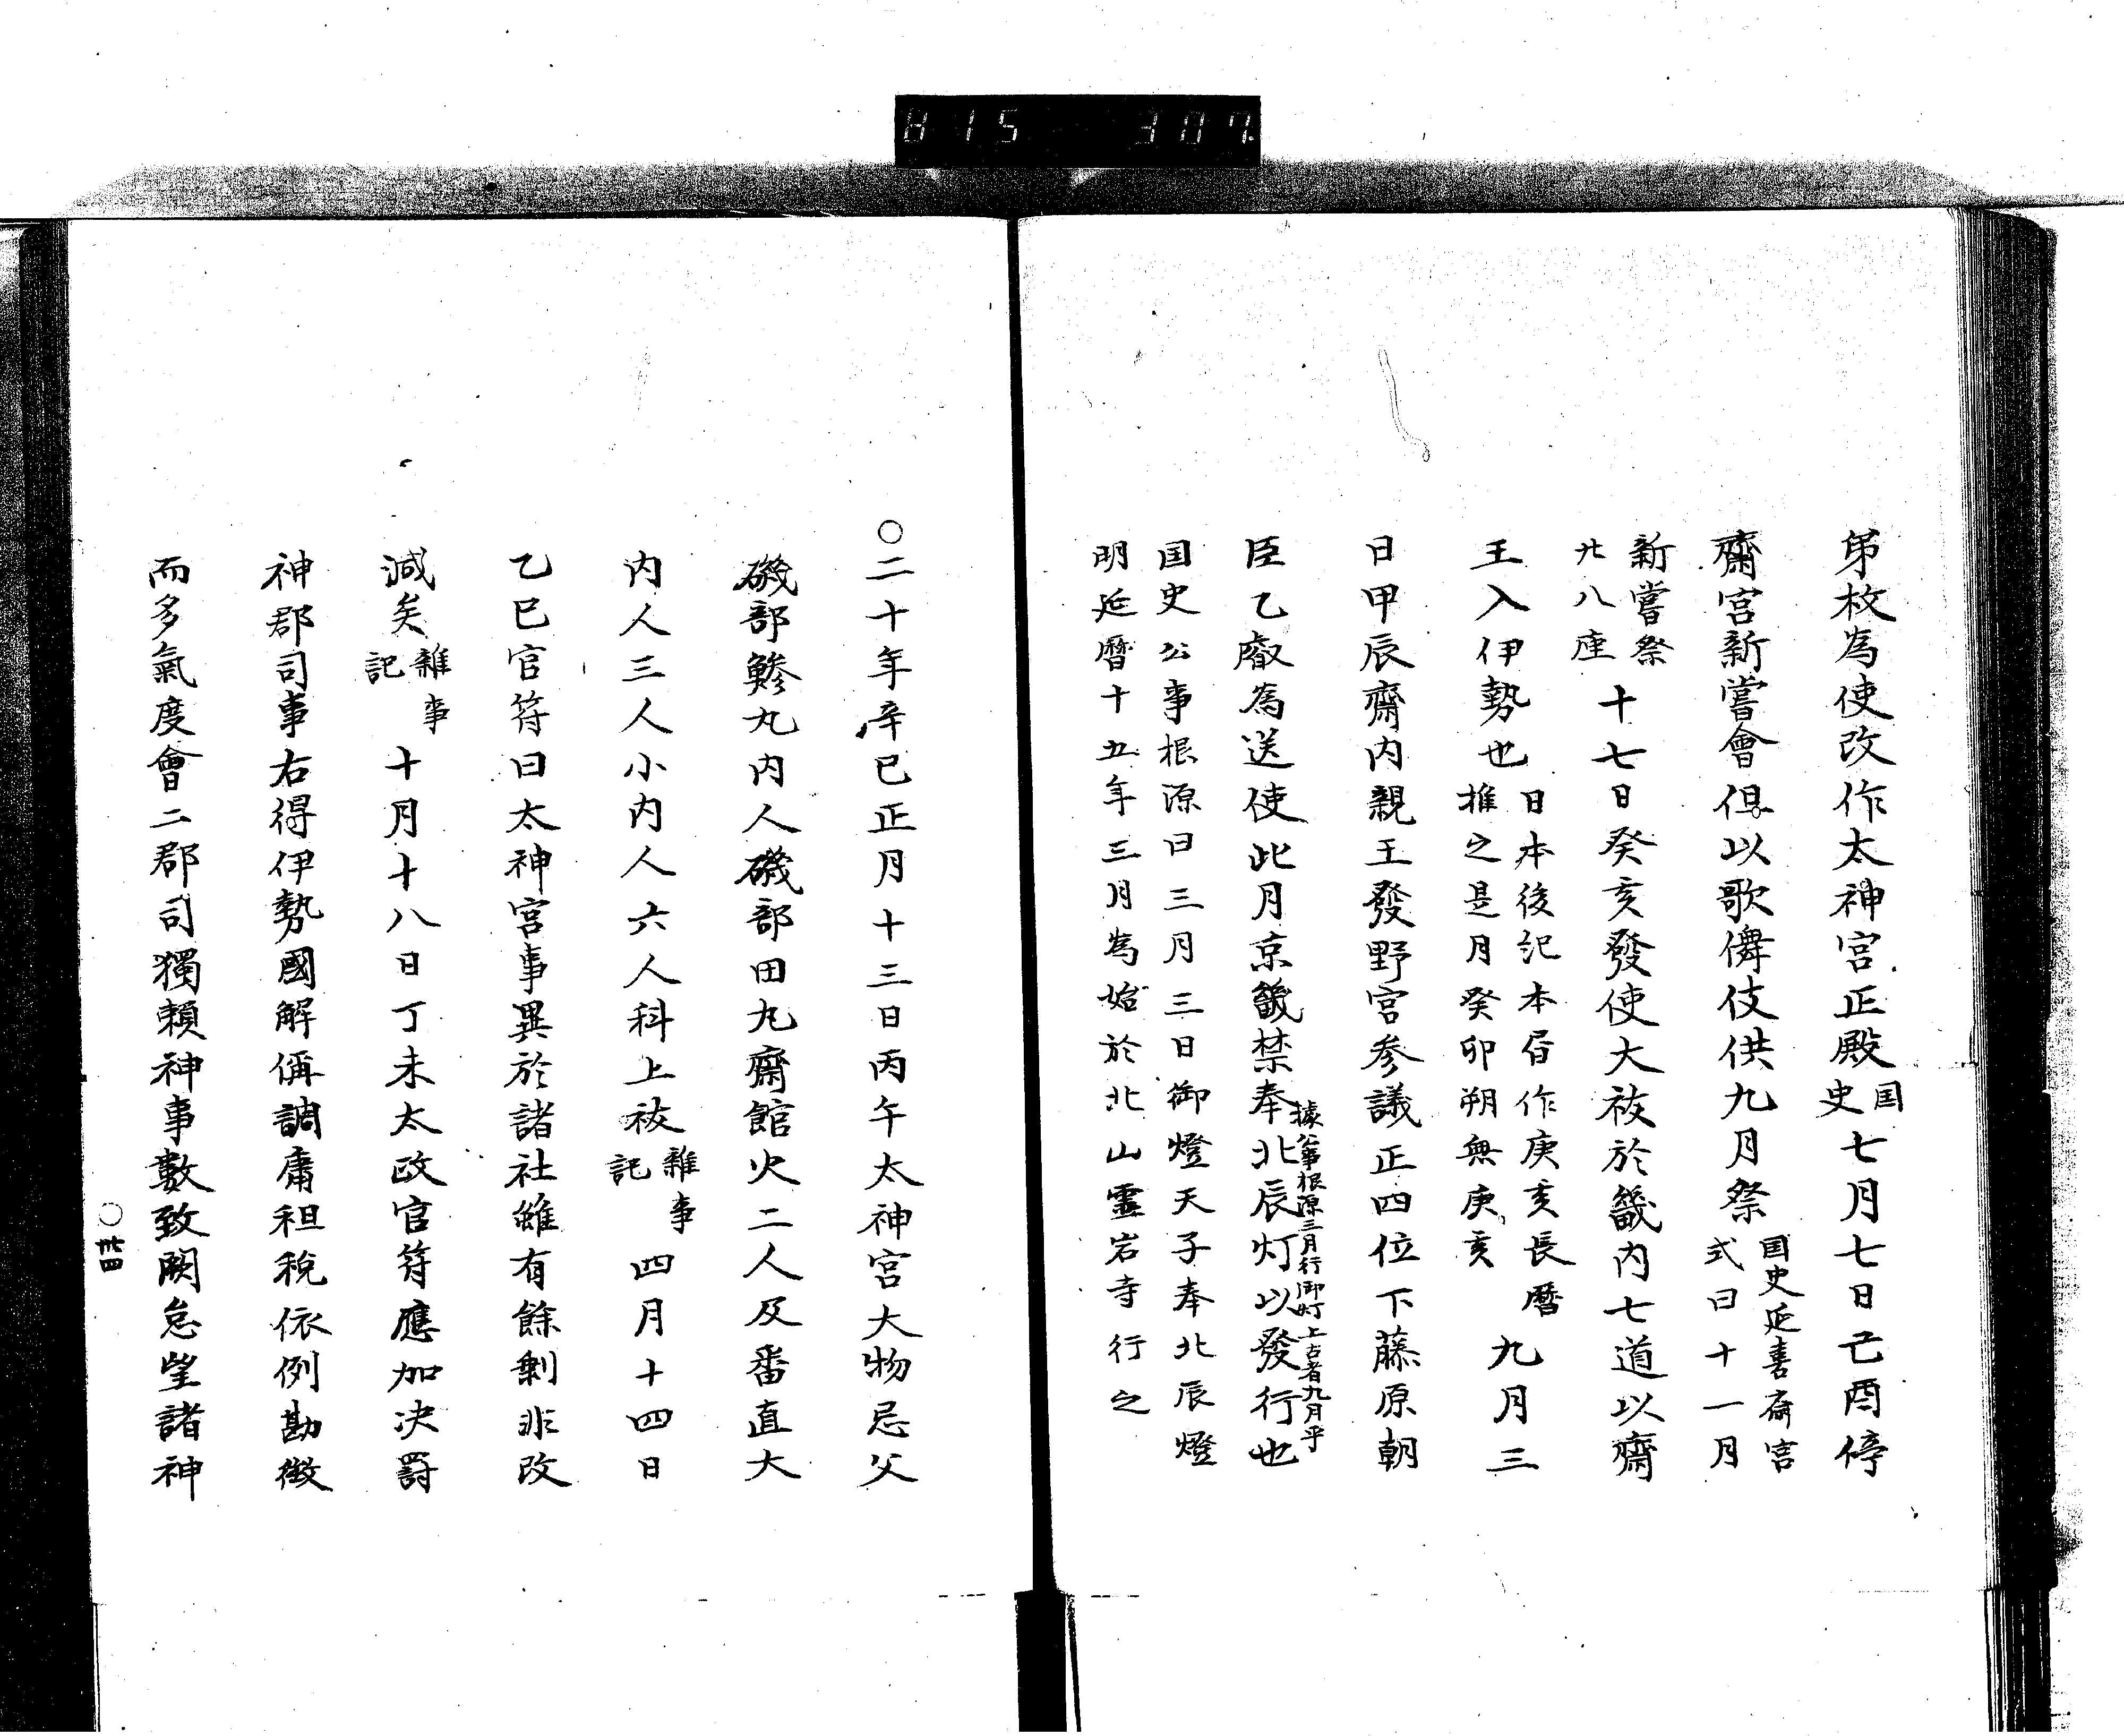 815 307
弟枚為使改作太神宮正殿国史七月七日己酉停
齋宮新嘗會但以歌儛伎供九月祭国史延喜斎宮式曰十一月
新嘗祭廿八座十七日癸亥發使大祓於畿内七道以齋
王入伊勢也日本後紀本居作庚亥長暦推之是月癸卯朔無庚亥九月三
日甲辰齋内親王發野宮参議正四位下藤原朝
臣乙叡為送使此月京畿禁奉北辰灯以發行也
據公事根源三月行御灯上古者九月乎
国史公事根源曰三月三日御燈天子奉北辰燈
明延暦十五年三月為始於北山霊岩寺行之
○二十年辛巳正月十三日丙午太神宮大物忌父
磯部鯵丸内人磯部田丸齋館火二人及番直大
内人三人小内人六人科上祓雜事記四月十四日
乙巳官符曰太神宮事異於諸社雖有餘剰非改
減矣雜事記十月十八日丁未太政官符應加決罸
神郡司事右得伊勢國解偁調庸租税依例勘徴
而多氣度會二郡司獨頼神事數致闕怠望諸神
○卅四